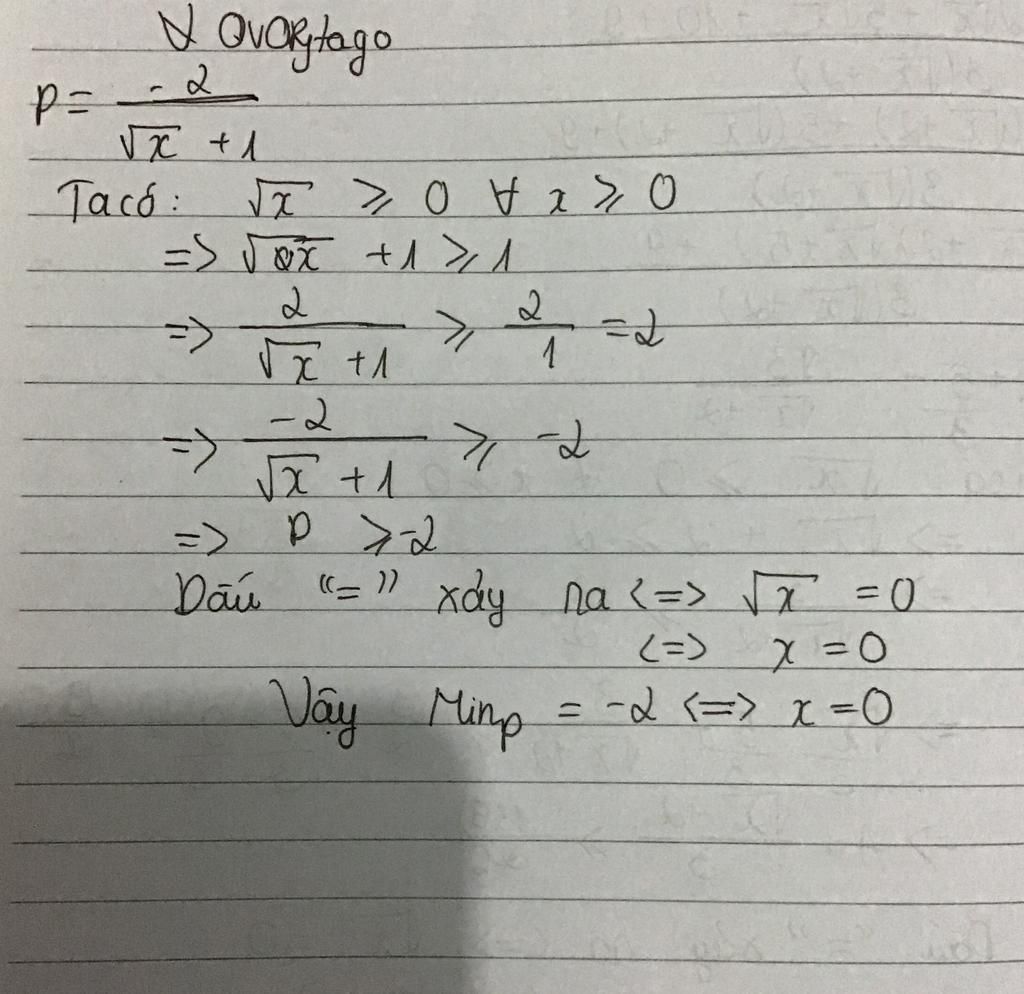 P = -2 / (√x + 1)
Ta có: √x ≥ 0 ∀ x ≥ 0
=> √x + 1 ≥ 1
=> 2 / (√x + 1) ≥ 2/1 = 2
=> -2 / (√x + 1) ≥ -2
=> P ≥ -2
Dấu "=" xảy ra <=> √x = 0
<=> x = 0
Vậy Min_P = -2 <=> x = 0